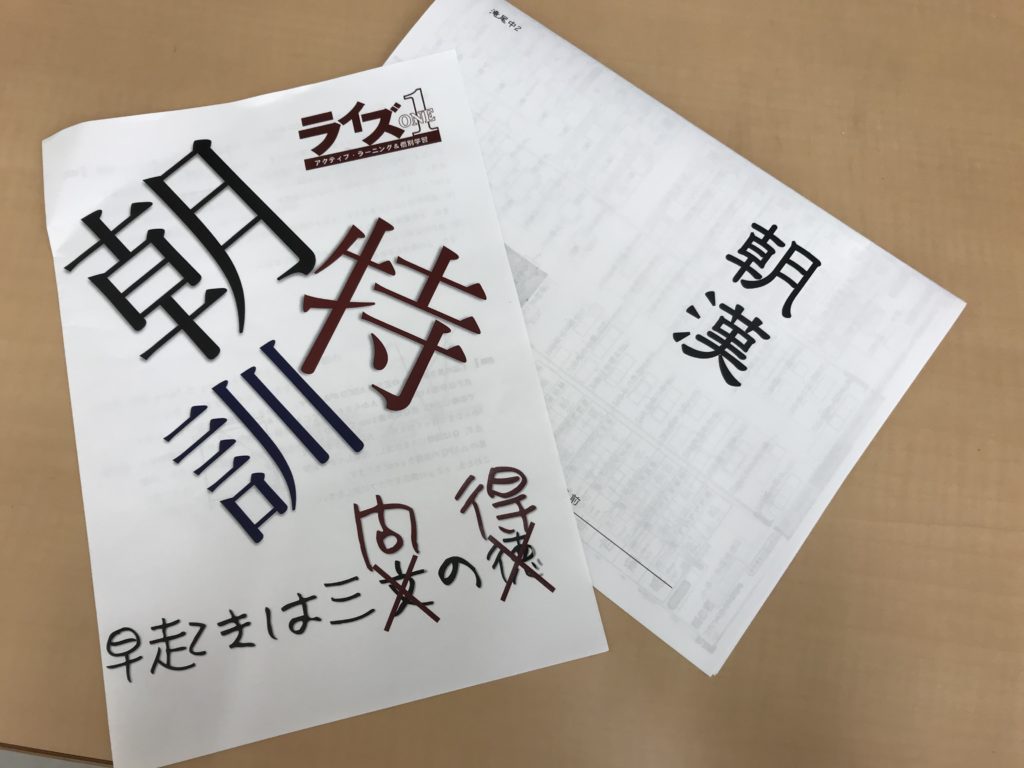 ライズ1
ONE
アクティブ・ラーニング＆個別学習
朝特訓
問 得
早起きは三文の徳
滝尾中2
朝漢
前